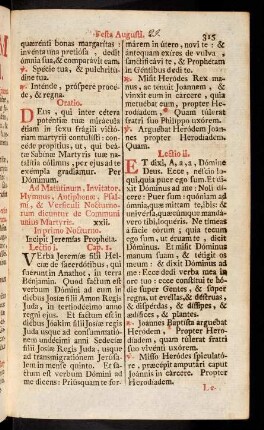 Festa Augusti.
315
quærenti bonas margaritas:
inventa una pretiosa, dedit
omnia sua, & comparavit eam.
℣. Spécie tua, & pulchritu-
dine tua.
℟. Inténde, próspere procé-
de, & regna.
Oratio.
DEus, qui inter cétera
poténtiæ tuæ mirácula
étiam in sexu frágili victó-
riam martyrii contulísti: con-
céde propítius, ut, qui be-
átæ Sabínæ Martyris tuæ na-
talítia cólimus, per ejus ad te
exémpla gradiámur. Per
Dóminum.
Ad Matutinum, Invitator.
Hymnus, Antiphonæ, Psal-
mi, & Versus Nocturno-
rum dicuntur de Communi
unius Martyris. xxii.
In primo Nocturno.
Incipit Jeremías Prophéta.
Lectio j. Cap. 1.
VErba Jeremíæ fílii Hel-
cíæ de sacerdótibus, qui
fuérunt in Anathot, in terra
Bénjamin. Quod factum est
verbum Dómini ad eum in
diébus Josíæ fílii Amon Regis
Juda, in tertiodécimo anno
regni ejus. Et factum est in
diébus Jóakim fílii Josíæ regis
Juda usque ad consummatió-
nem undécimi anni Sedecíæ
fílii Josíæ Regis Juda, usque
ad transmigratiónem Jerúsa-
lem in mense quinto. Et fa-
ctum est verbum Dómini ad
me dicens: Priúsquam te for-
márem in útero, novi te: &
ántequam exíres de vulva,
sanctificávi te, & Prophétam
in Géntibus dedi te.
℟. Misit Heródes Rex ma-
nus, ac ténuit Joánnem, &
vinxit eum in cárcere, quia
metuébat eum, propter He-
rodíadem, Quam túlerat
fratri suo Philíppo uxórem.
℣. Arguébat Heródem Joán-
nes propter Herodíadem.
Quam.
Lectio ij.
ET dixi, A, a, a, Dómine
Deus. Ecce, néscio lo-
qui, quia puer ego sum. Et di-
xit Dóminus ad me: Noli dí-
cere: Puer sum: quóniam ad
ómnia, quæ mittam te, ibis: &
univérsa, quæcúmque mandá-
vero tibi, loquéris. Ne tímeas
a fácie eórum; quia tecum
ego sum, ut éruam te; dicit
Dóminus. Et misit Dóminus
manum suam, & tétigit os
meum: & dixit Dóminus ad
me: Ecce dedi verba mea in
ore tuo: ecce constítui te hó-
die super Gentes, & super
regna, ut evéllas, & déstruas,
& dispérdas, & díssipes, &
ædífices, & plantes.
℟. Joannes Baptísta arguébat
Heródem, Propter Hero-
díadem, quam túlerat fratri
suo vivénti uxórem.
℣. Misso Heródes spiculató-
re, præcépit amputári caput
Joánnis in cárcere. Propter
Herodíadem.
Le-